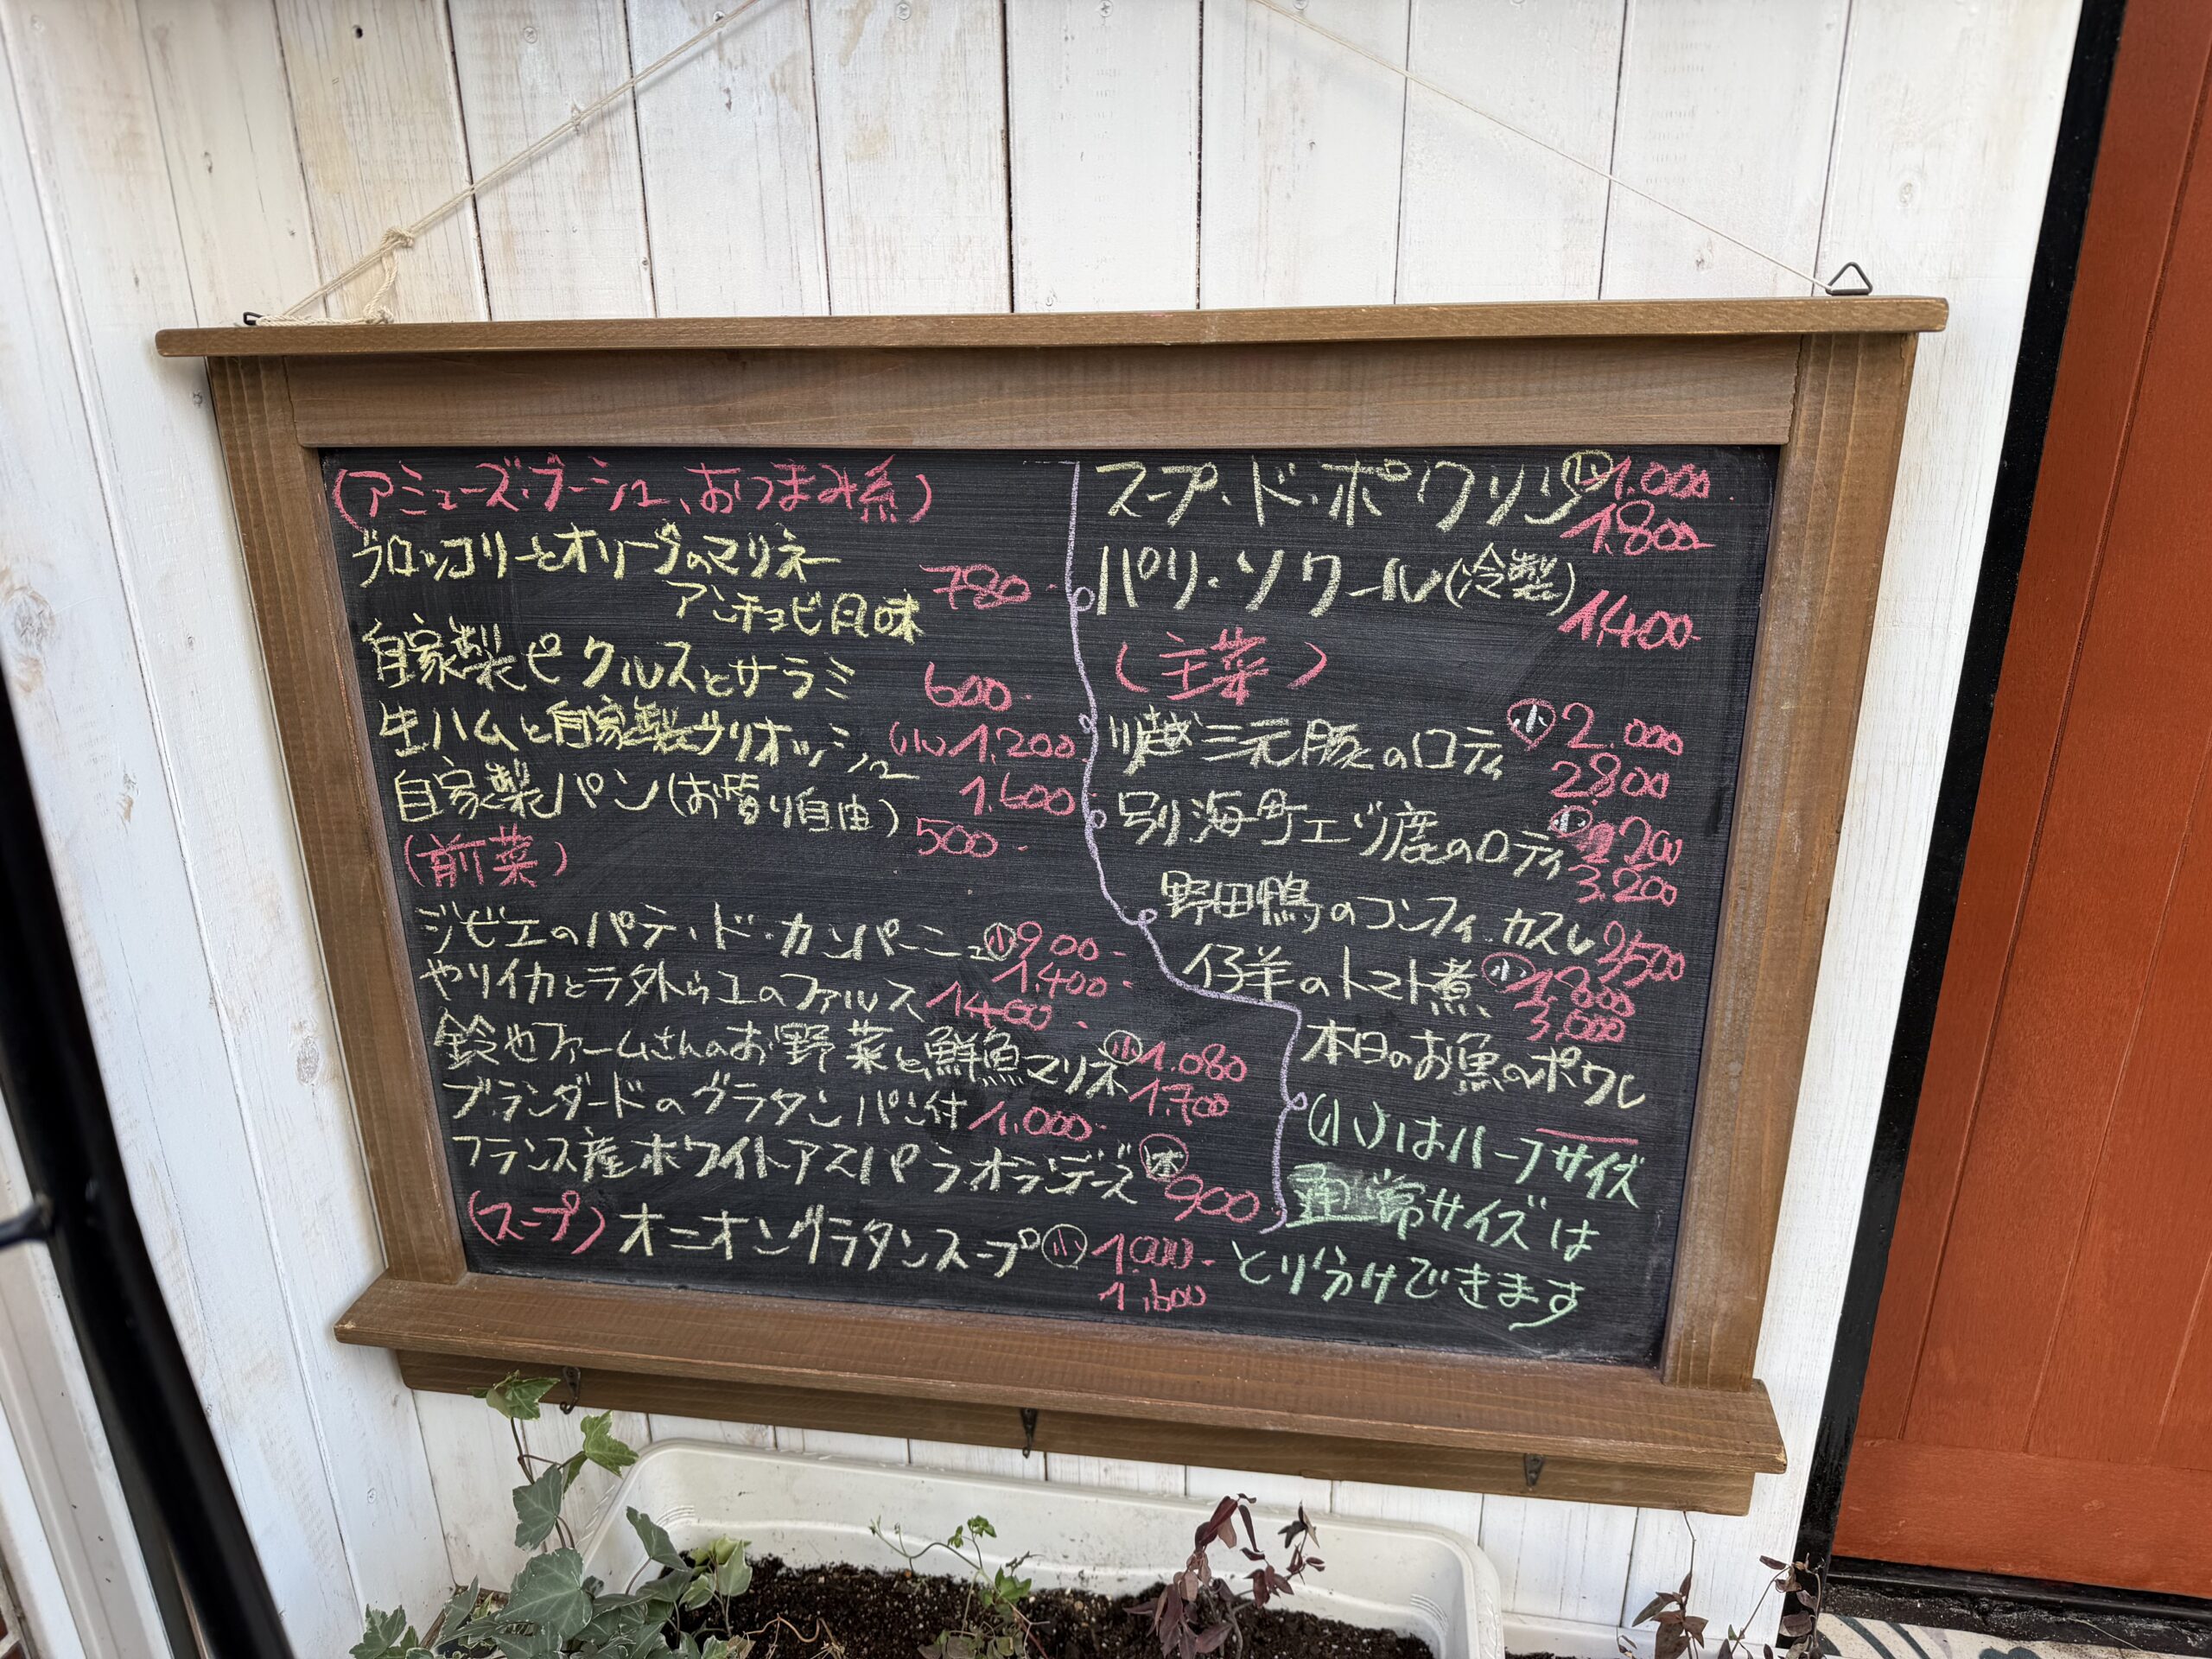 (アミューズ・ブーシュ、おつまみ系)
ブロッコリーとオリーブのマリネ
アンチョビ風味 780-
自家製ピクルスとサラミ 600-
生ハムと自家製ブリオッシュ (小)1,200
1,600
自家製パン(お替り自由) 500-
(前菜)
ジビエのパテ・ド・カンパーニュ 小 900-
1,400-
やりイカとラタトゥユのファルス 1400-
鈴也ファームさんのお野菜と鮮魚マリネ 小 1.080
1.700
ブランダードのグラタン パン付 1.000-
フランス産ホワイトアスパラオランデーズ 900
(スープ) オニオングラタンスープ 小 1.000-
1,600
スープ・ド・ポワソン 小 1.000
1.800
パリ・ソワール(冷製)
1,400-
(主菜)
川越三元豚のロティ 小 2.000
2800
別海町エゾ鹿のロティ 小 2200
3.200
野田鴨のコンフィ カスレ 3500
仔羊のトマト煮 小 1.800
3,000
本日のお魚のポワレ
(小)はハーフサイズ
通常サイズは
とり分けできます